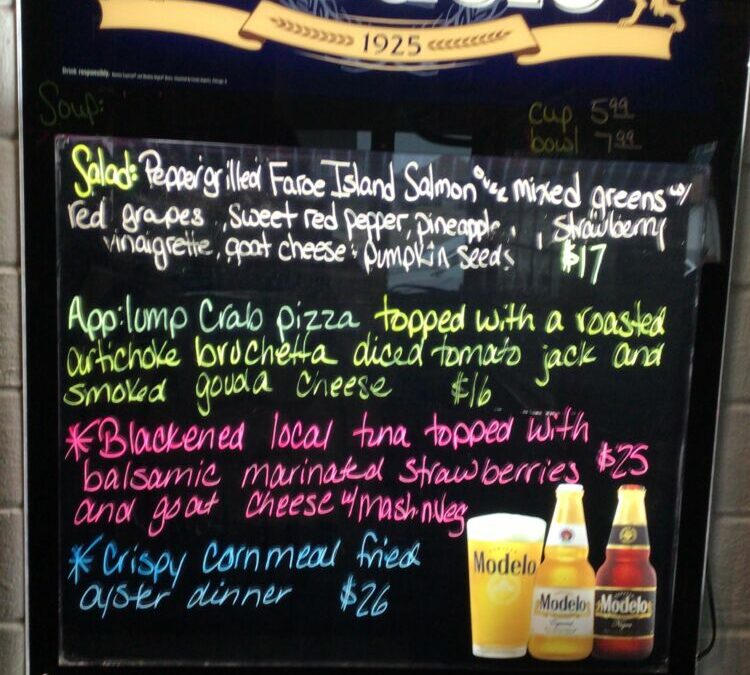 1925
Drink responsibly.
Soup:
cup 5.99
bowl 7.99
Salad: Pepper grilled Faroe Island Salmon over mixed greens w/
red grapes, sweet red pepper, pineapple, , strawberry
vinaigrette, goat cheese : pumpkin seeds $17
App: lump Crab pizza topped with a roasted
artichoke bruchetta diced tomato jack and
smoked gouda cheese $16
*Blackened local tuna topped with
balsamic marinated strawberries $25
and goat cheese w/mash n veg
*Crispy cornmeal fried
oyster dinner $26
Modelo
Modelo
Especial
Modelo
Negra